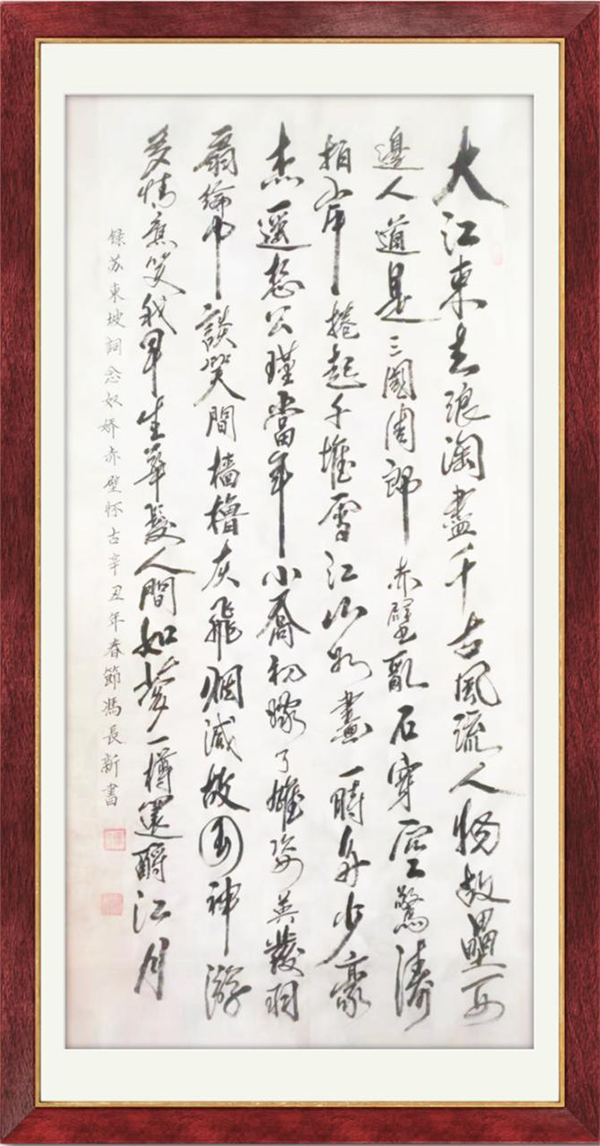 大江東去浪淘盡千古風流人物故壘西
邊人道是三國周郎赤壁亂石穿空驚濤
拍岸捲起千堆雪江山如畫一時多少豪
杰遥想公瑾當年小喬初嫁了雄姿英發羽
扇綸巾談笑間檣櫓灰飛烟滅故國神游
多情應笑我早生華髮人間如夢一樽還酹江月
録苏東坡詞念奴娇赤壁怀古辛丑年春節馮長新書